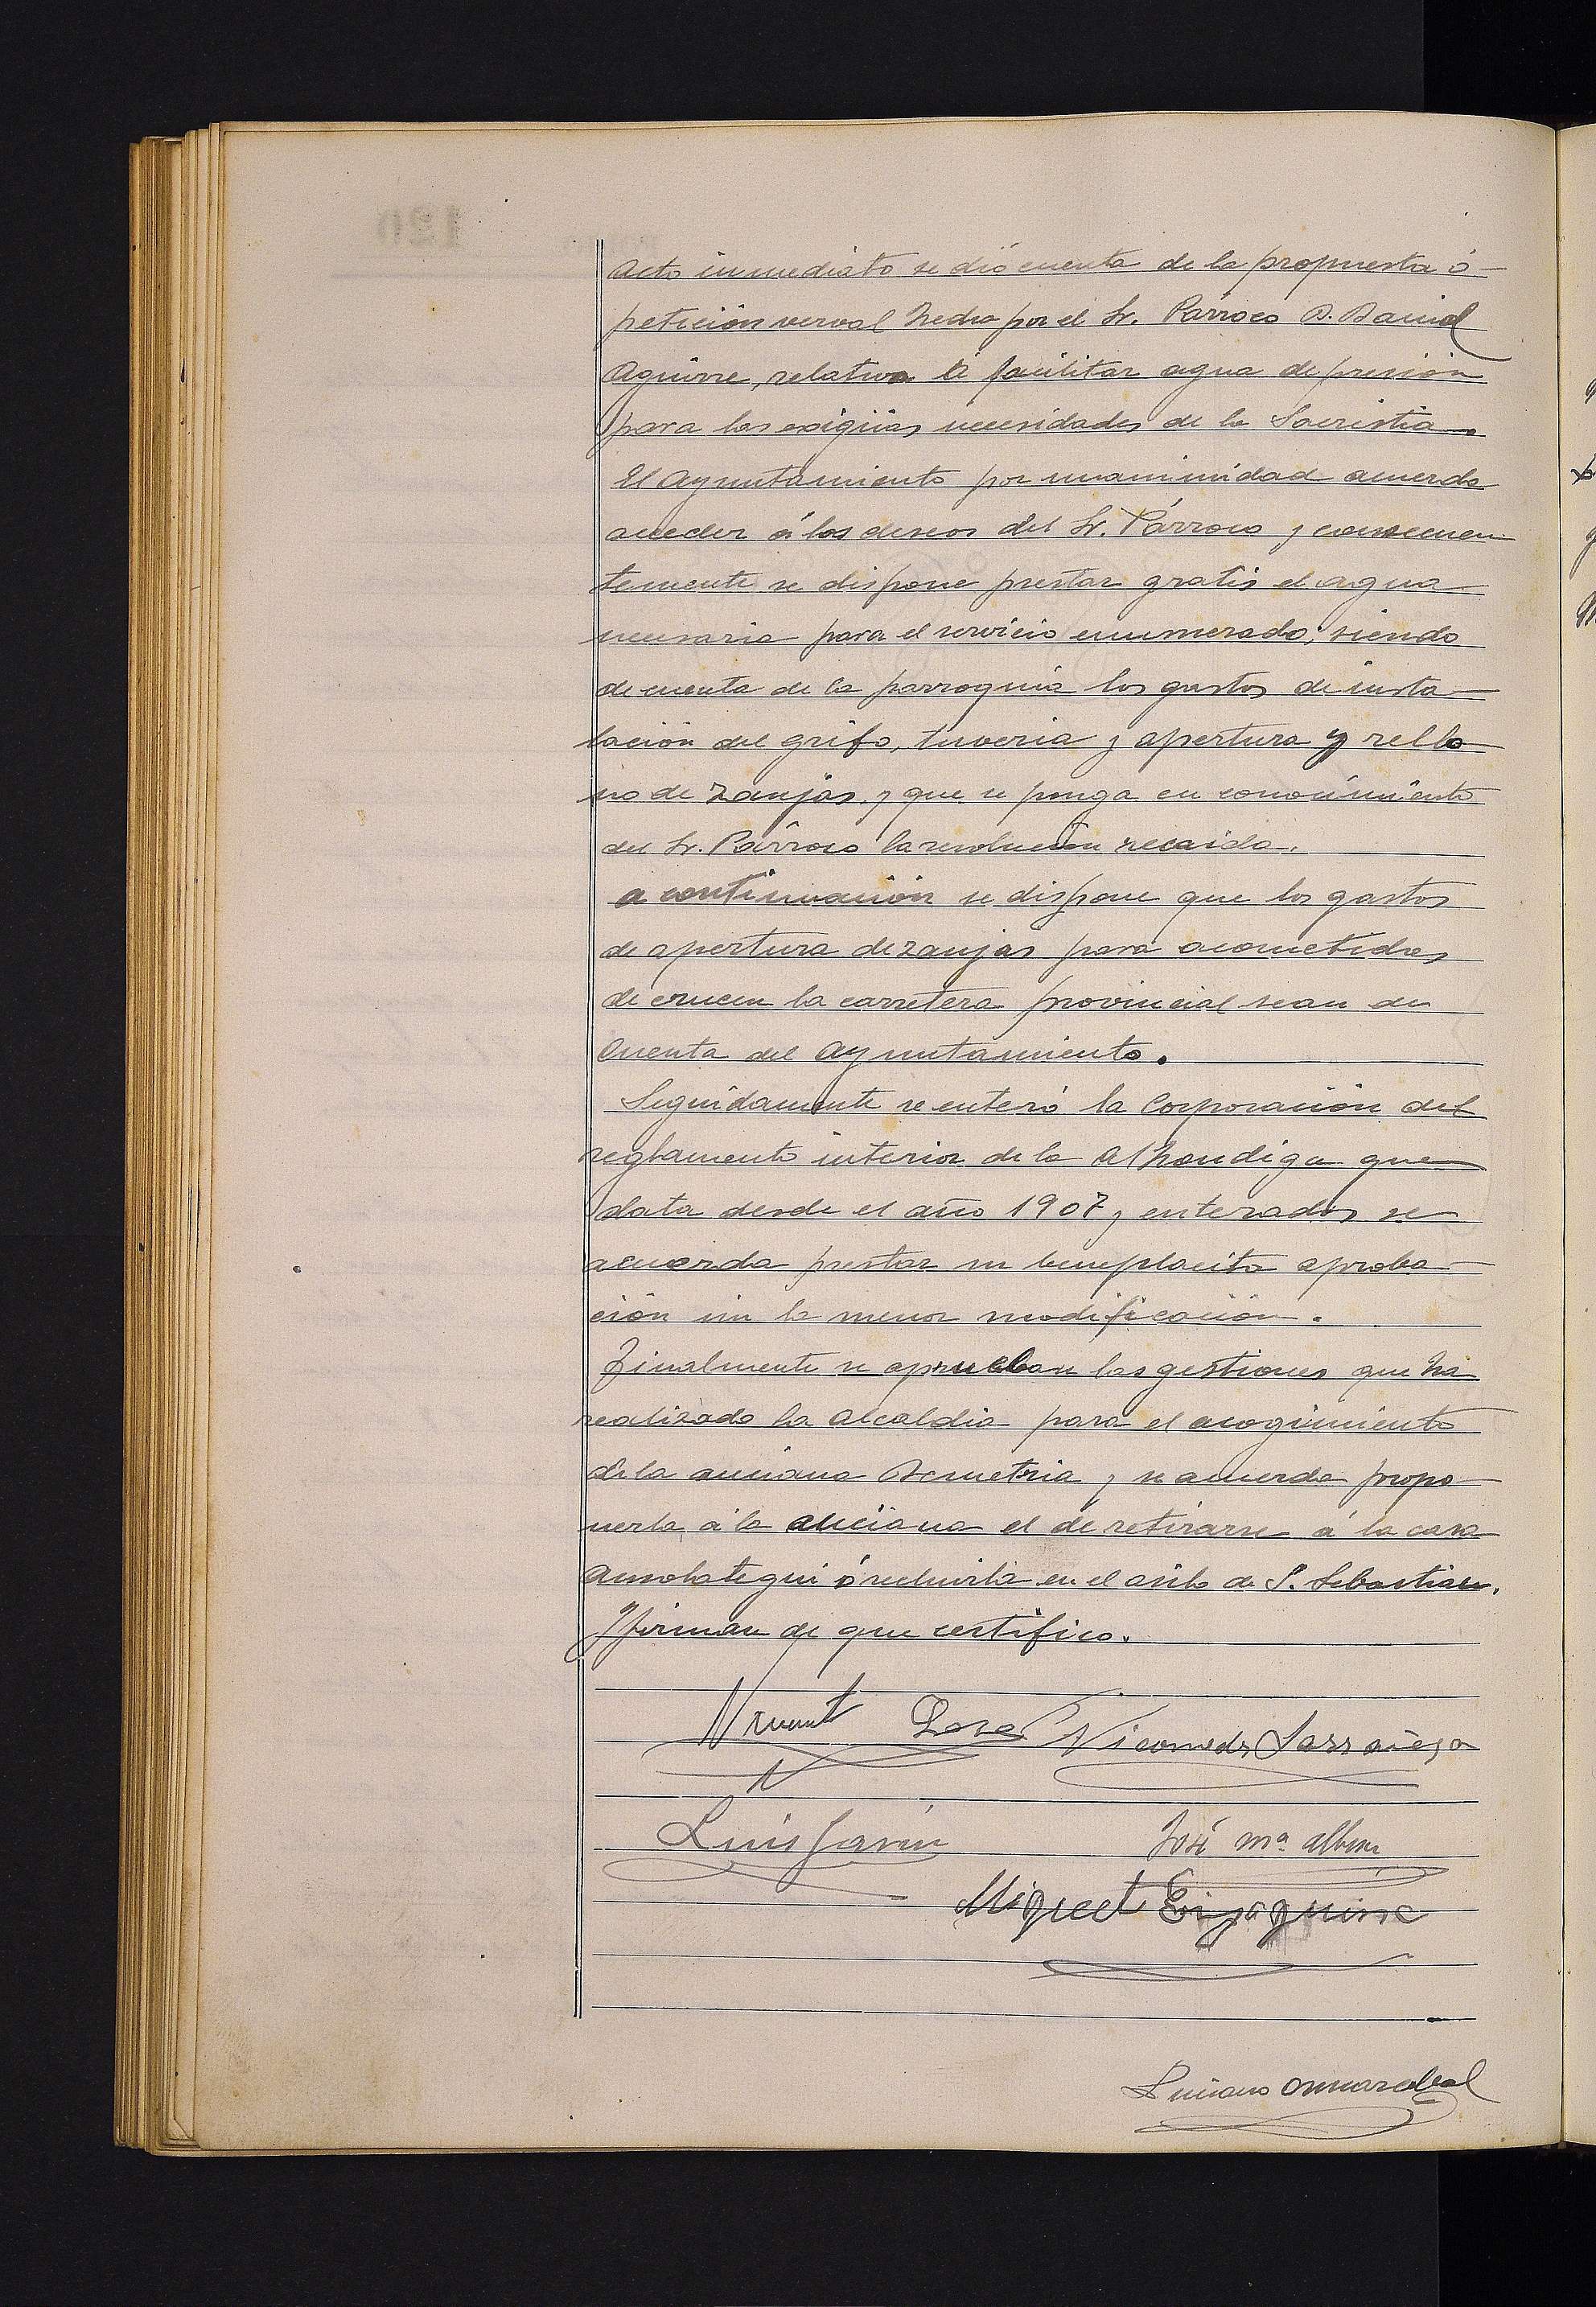 Acto inmediato se dió cuenta de la propuesta ó
petición verval hecha por el Sr. Párroco D. Daniel
Aguirre, relativa á facilitar agua de presión
para las exigüas necesidades de la Sacristia.
El Ayuntamiento por unanimidad acuerda
acceder á los deseos del Sr. Párroco y consecuen
temente se dispone prestar gratis el agua
necesaria para el servicio enumerado, siendo
de cuenta de la parroquia los gastos de insta
lación del grifo, tuveria y apertura y relle
no de zanjas, y que se ponga en conocimiento
del Sr. Párroco la resolución recaida.
A continuación se dispone que los gastos
de apertura de zanjas para acometidas
de crucen la carretera provincial sean de
cuenta del Ayuntamiento.
Seguidamente se enteró la Corporación del
reglamento interior de la Alhondiga que
data desde el año 1907 y enterados se
acuerda prestar su beneplacito aproba
ción sin la menor modificación.
Finalmente se aprueban las gestiones que ha
realizado la Alcaldia para el acogimiento
de la anciana Demetria y se acuerda propo
nerla á la anciana el de retirarse á la casa
Ansolategui ó recluirla en el asilo de S. Sebastian.
Y firman de que certifico.
Nicomedes Larrañaga
Luis Garin José Mª
Miguel Eizaguirre
Luciano Ormazabal
120